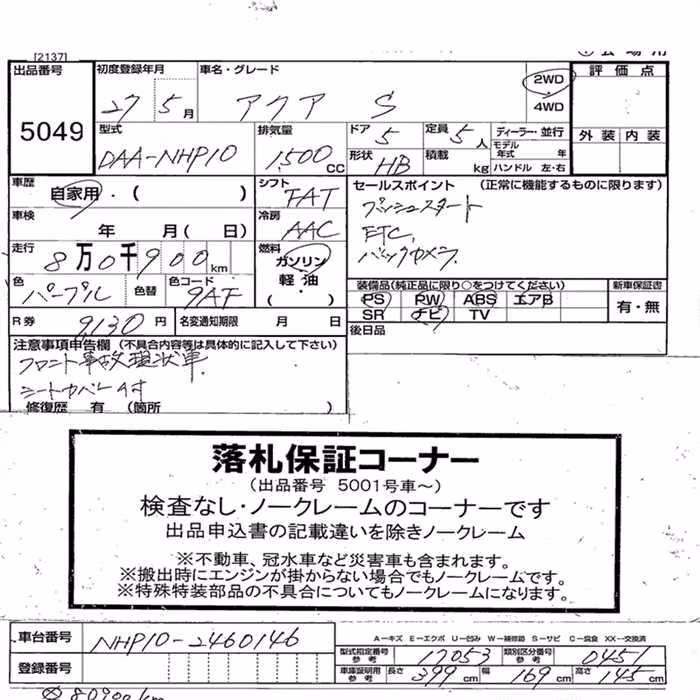 [2137]
出品番号 初度登録年月 車名・グレード 2WD 評価点
5049 27 5月 アクア S 4WD
型式 排気量 ドア 定員 ディーラー・並行 外装 内装
DAA-NHP10 1,500cc 5 5人 モデル年式 年
形状 HB 積載 kg ハンドル 左・右
車歴 自家用・( ) シフト FAT セールスポイント (正常に機能するものに限ります)
車検 年 月(日) 冷房 AAC プッシュスタート
ETC,
走行 8万0千900km 燃料 ガソリン バックカメラ
軽油
( )
色 パープル 色替 色コード 9AF 装備品(純正品に限り○をつけてください) 新車保証書
PS PW ABS エアB 有・無
SR ナビ TV
R券 9,130円 名変通知期限 月 日 後日品
注意事項申告欄 (不具合内容等は具体的に記入して下さい)
フロント事故現状車
修復歴 有 (箇所 )
落札保証コーナー
(出品番号 5001号車~)
検査なし・ノークレームのコーナーです
出品申込書の記載違いを除きノークレーム
※不動車、冠水車など災害車も含まれます。
※搬出時にエンジンが掛からない場合でもノークレームです。
※特殊特装部品の不具合についてもノークレームになります。
車台番号 NHP10-2460146
A-キズ E-エクボ U-凹み W-補修跡 S-サビ C-腐食 XX-交換済
型式指定番号 参考 17053 類別区分番号 参考 0451
登録番号 車庫証明用 参考 長さ 399cm 幅 169cm 高さ 145cm
80900km